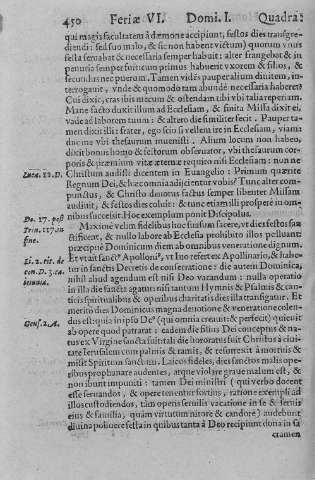 450 Feriæ VI. Domi. I. Quadra:
qui magis facultatem à dæmone accipiunt, festos dies transgrediendi: sed suo malo, & sic non habent victum) quorum vnus
festa seruabat & necessaria semper habuit: alter frangebat & in
penuria semper fuit cum primus habuerit vxorem & filios, &
secundus nec puerum. Tamen vidēs pauper alium diuitem, interrogauit, vnde & quomodo tam abundè necessaria haberet?
Cui dixit, cras ibis mecum & ostendam tibi vbi talia reperiam.
Mane facto duxit illum ad Ecclesiam, & finita Missa dixit ei,
vade ad laborem tuum: & altero die similiter fecit. Pauper tamen dixit illi: frater, ego scio si vellem ire in Ecclesiam, viam
ducme vbi thesaurum inuenisti. Alium locum non habeo,
dixit bonus homo & festorum obseruator, vbi thesaurum corporis & præmium vitæ æternæ requiro nisi Ecclesiam: non ne
Luca. 12. D. Christum audisti dicentem in Euangelio: Primum quærite
Regnum Dei, & hæc omnia adijcientur vobis? Tunc alter compunctus, & Christo deuotus factus semper libenter Missam
audiuit, & festos dies coluit: & tunc etiam illi prosperè in omnibus successit. Hoc exemplum ponit Discipulus.
Maximè velim fidelibus hoc fuisum facere, vt dies festos sanctificent, & nullo labore ab Ecclesia prohibito illos polluant
præcipuè Dominicum diem ab omnibus veneratione dignum.
Et vt ait sanctus Apollonius, vt Iuo refert ex Apollinario, & habetur in sanctis Decretis de consecratione: die autem Dominica,
nihil aliud agendum est nisi Deo vacandum: nulla operatio
in illa die sancta agatur nisi tantum Hymnis & Psalmis & canticis spiritualibus & operibus charitatis dies illa transigatur. Et
meritò dies Dominicus magna deuotione & veneratione colendus est: quia in ipsa Deus (qui omnia creauit & perfecit) quieuit
Gens. 2. A. ab opere quod patrarat: eadem die filius Dei conceptus & natus ex Virgine sancta fuit: tali die honoratus fuit Christus à ciuitate Ierusalem cum palmis & ramis, & resurrexit à mortuis &
misit Spiritum sanctum. Laicos fideles, dies sanctos malis operibus prophanare audentes, atque violare graue malum est, &
non ibunt impuniti: tamen Dei ministri (qui verbo docent
esse seruandos, & opere tenentur fontius, ratione exempli ad
illos custodiendos, tàm operis seruilis vacatione in se & seruis
eius & familia, quàm virtutum nitore & candore) audebunt
diuina polluere festa in quibus tanta à Deo recipiunt dona in sacramen